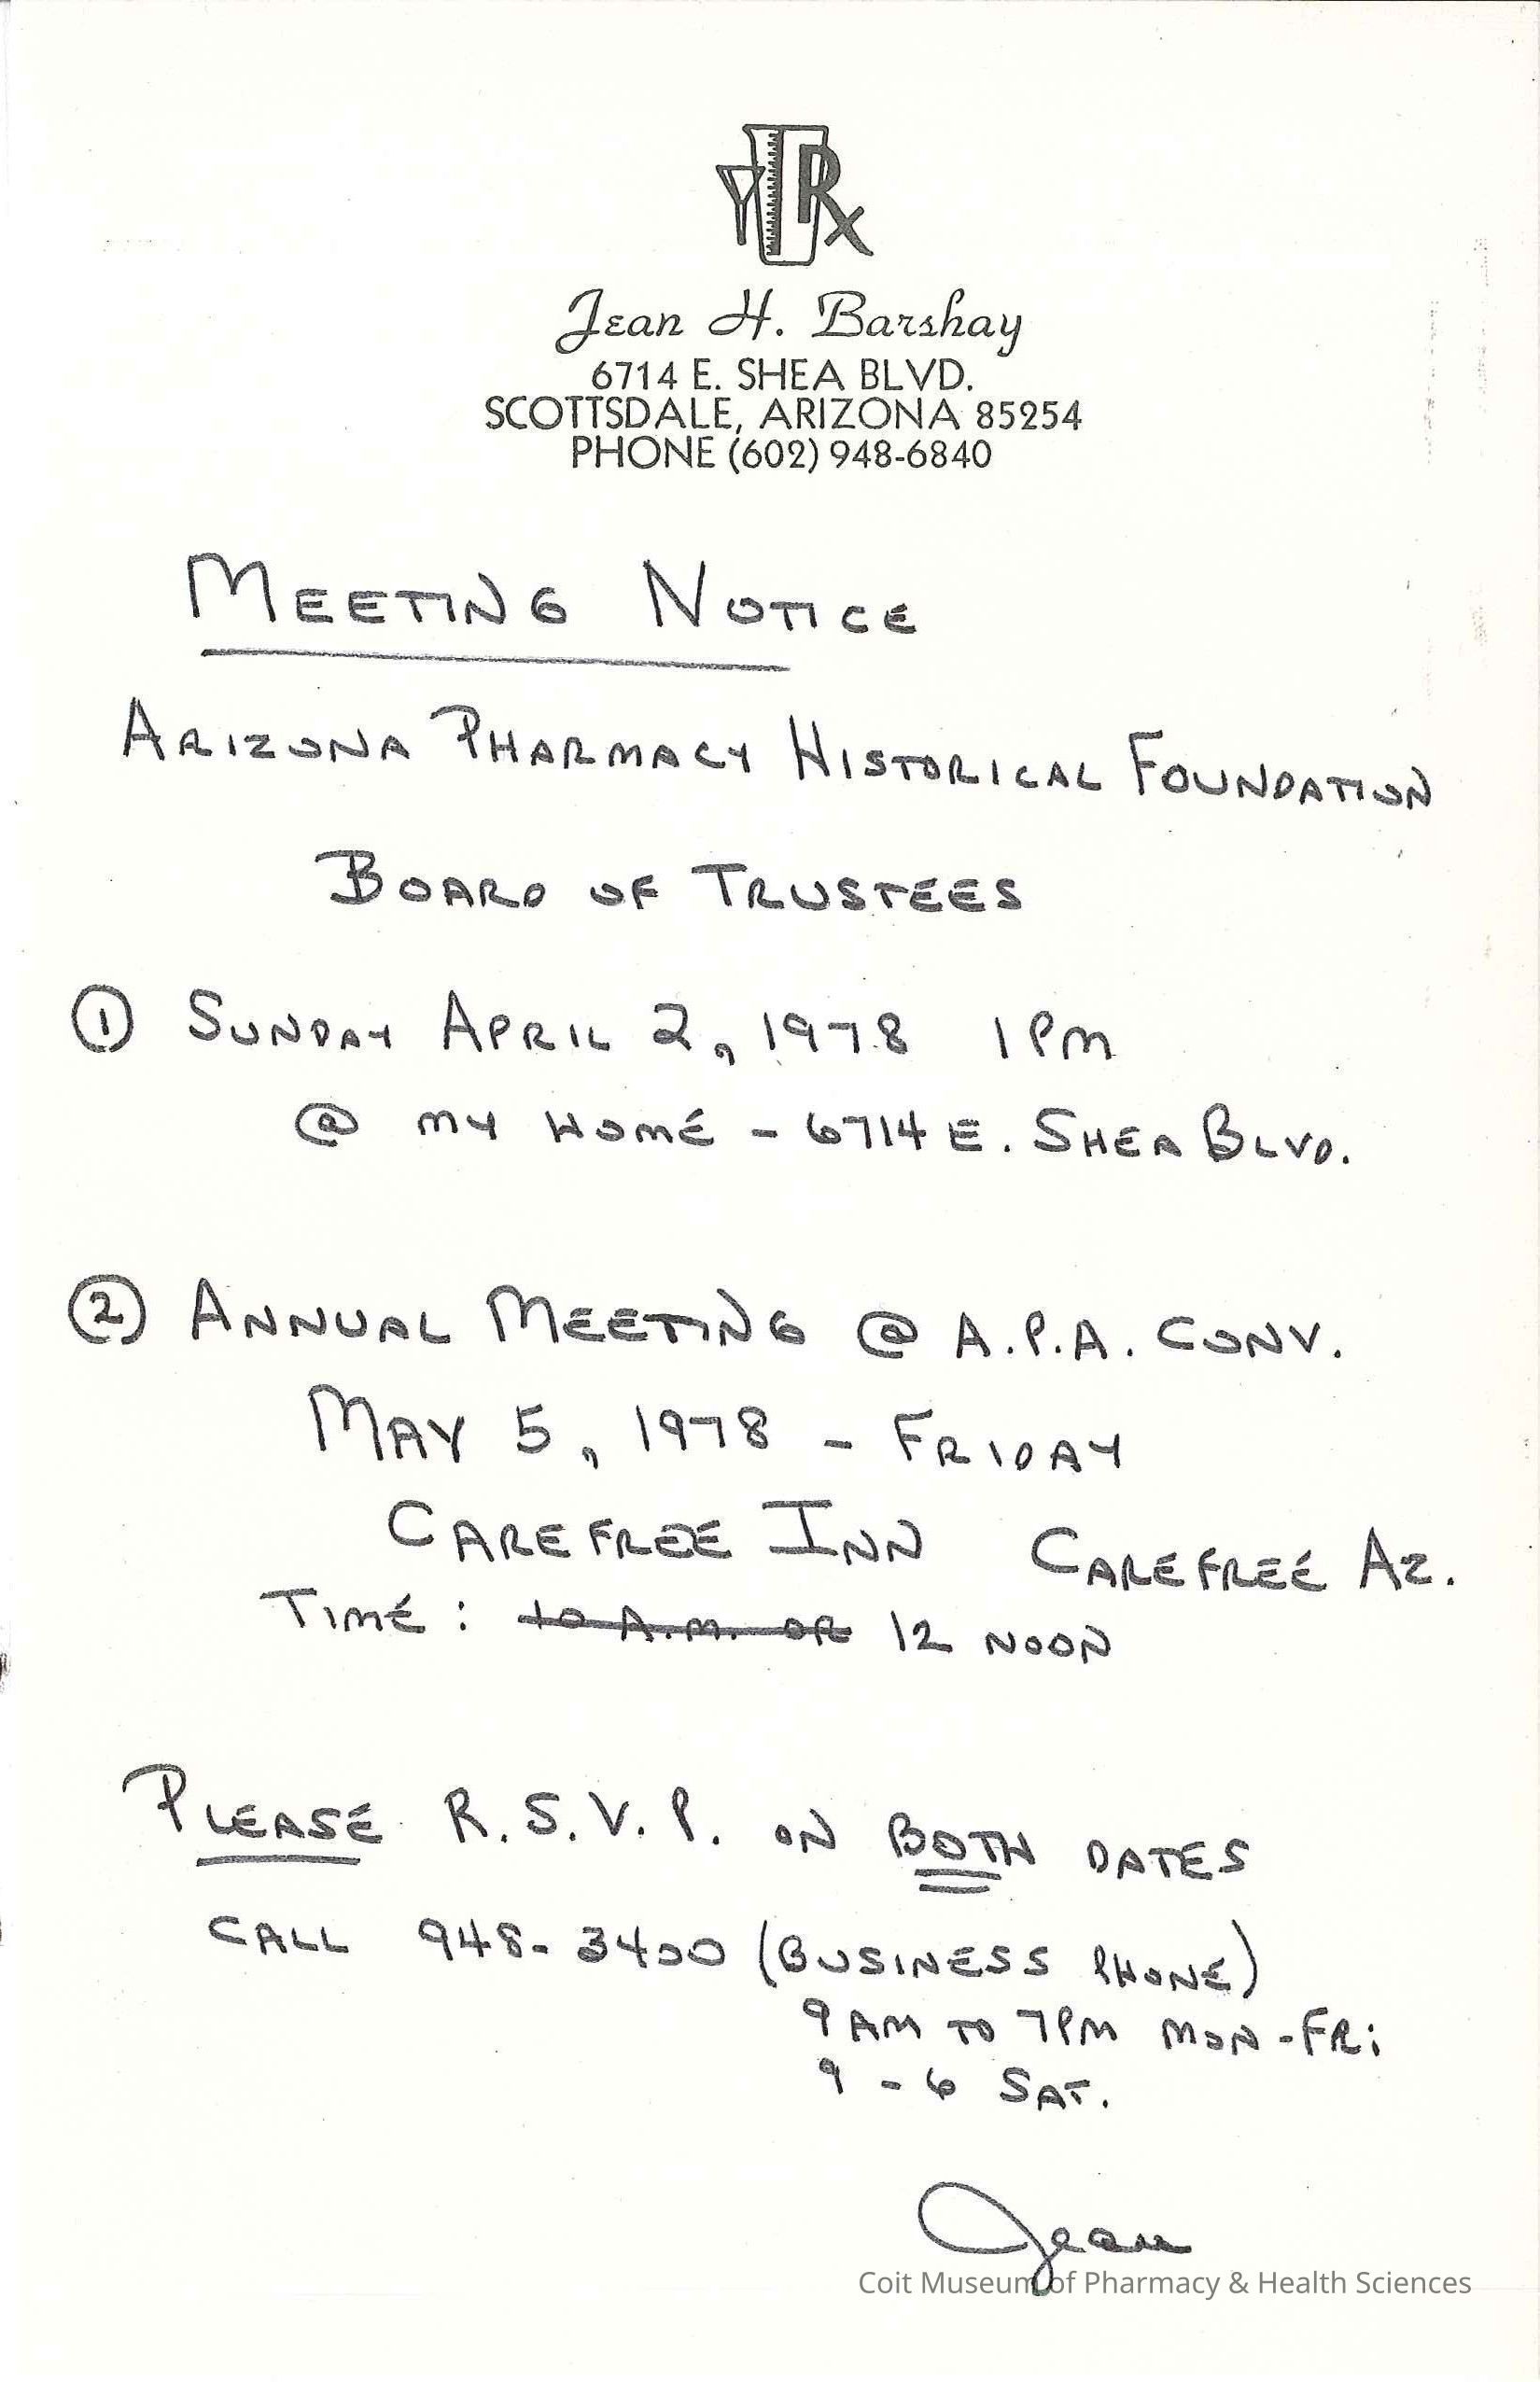 Rx
Jean H. Barshay
6714 E. SHEA BLVD.
SCOTTSDALE, ARIZONA 85254
PHONE (602) 948-6840
MEETING NOTICE
ARIZONA PHARMACY HISTORICAL FOUNDATION
BOARD OF TRUSTEES
① SUNDAY APRIL 2, 1978 1 PM
@ MY HOME - 6714 E. SHEA BLVD.
② ANNUAL MEETING @ A.P.A. CONV.
MAY 5, 1978 - FRIDAY
CAREFREE INN CAREFREE AZ.
TIME: 10 A.M. OR 12 NOON
PLEASE R.S.V.P. ON BOTH DATES
CALL 948-3400 (BUSINESS PHONE)
9 AM TO 7 PM MON-FRi
9 - 6 SAT.
Jean
Coit Museum of Pharmacy & Health Sciences